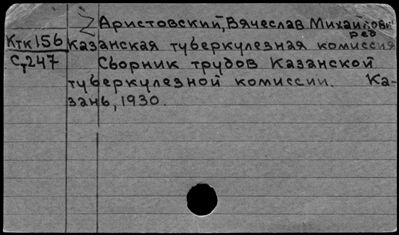 Z Аристовский, Вячеслав Михайлович
ред
Ктк156 Казанская туберкулезная комиссия
Ст247 Сборник трудов Казанской
туберкулезной комиссии. Ка-
зань, 1930.